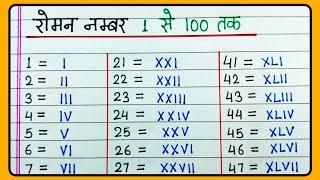 रोमन नम्बर 1 से 100 तक
1 = I 21 = XXI 41 = XLI
2 = II 22 = XXII 42 = XLII
3 = III 23 = XXIII 43 = XLIII
4 = IV 24 = XXIV 44 = XLIV
5 = V 25 = XXV 45 = XLV
6 = VI 26 = XXVI 46 = XLVI
7 = VII 27 = XXVII 47 = XLVII